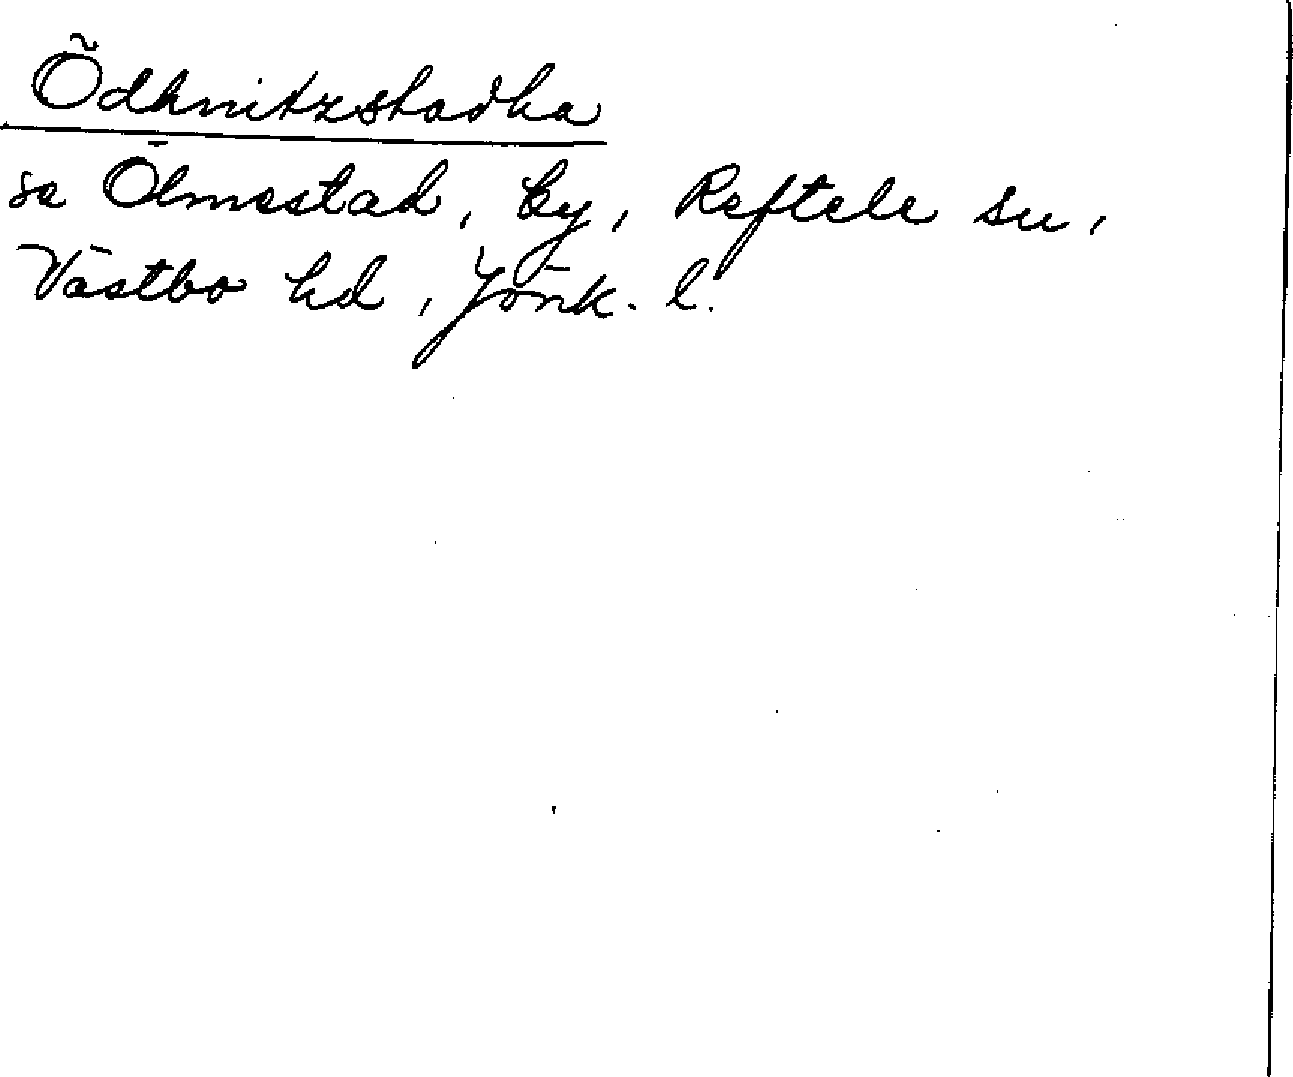 Ödhnitzstadha
se Ölmestad, by, Reftele sn,
Västbo hd, Jönk. l.